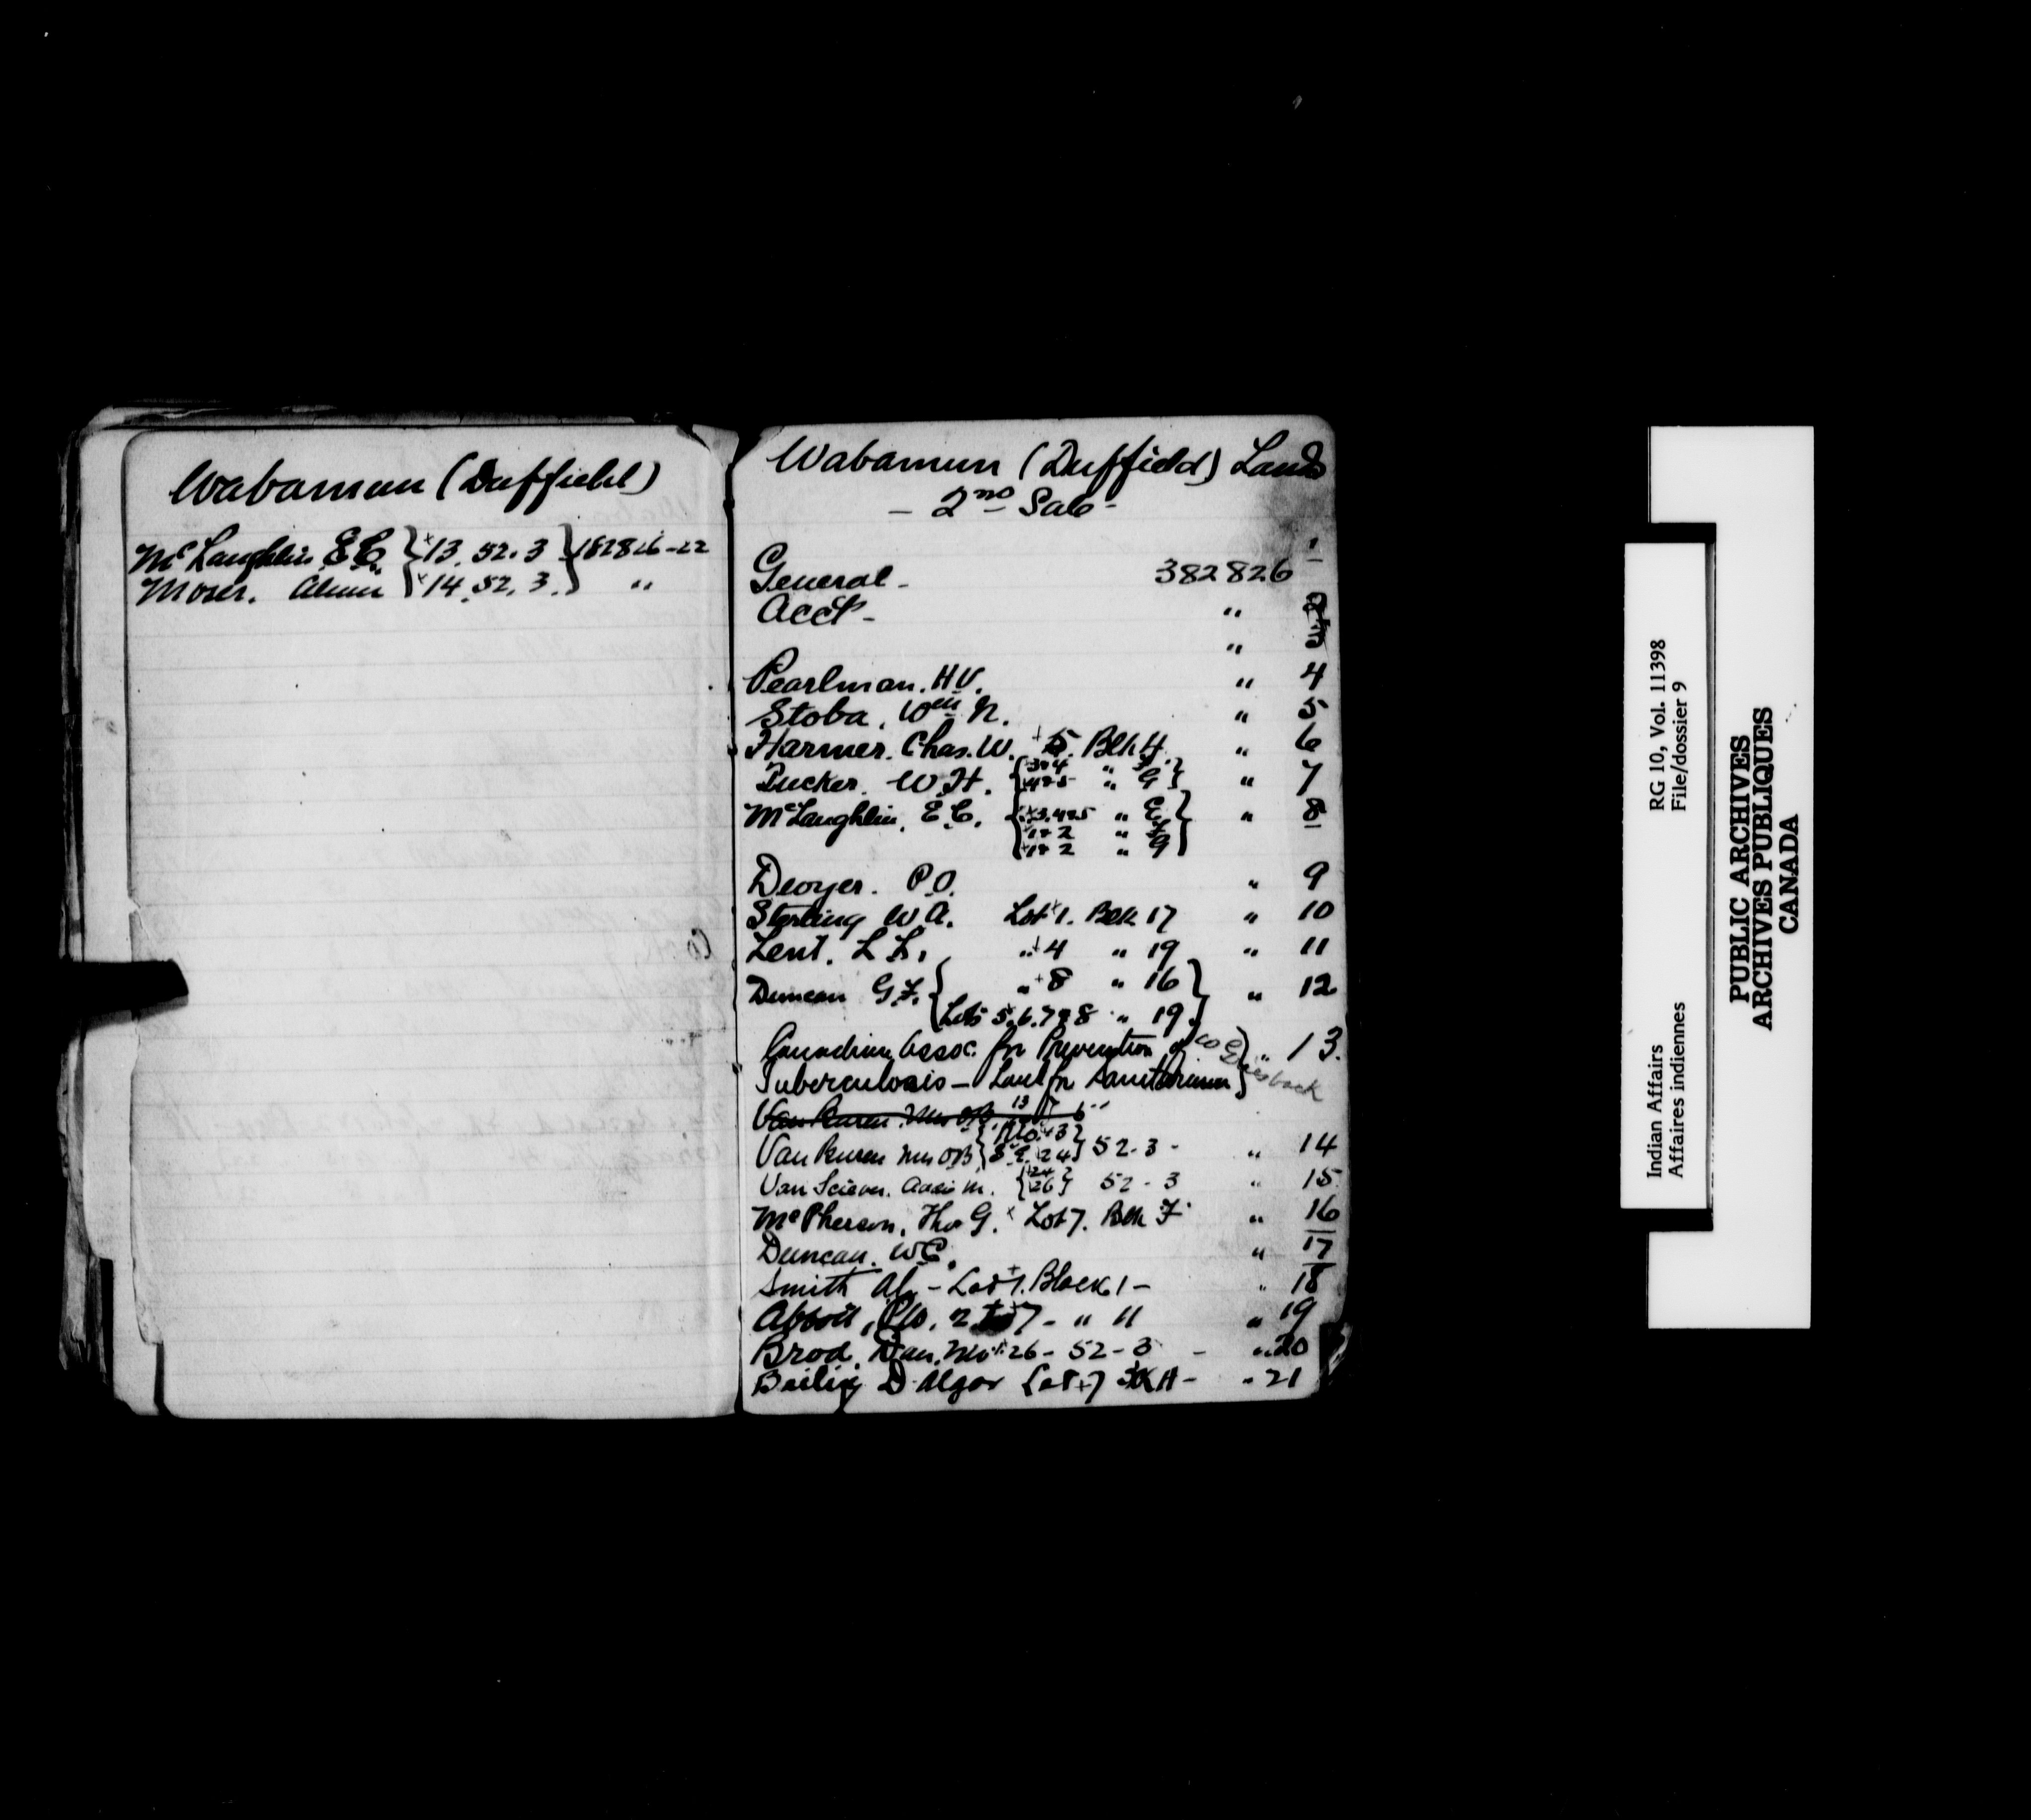 Wabamun (Duffield)
McLaughlin E.C. } x13. 52. 3 } 182826-22
Moser. } x14. 52. 3. } "
Wabamun (Duffield) Lands
- 2nd Sale -
General - 382826 - 1
Acct - " 2
" 3
Pearlman. H.V. " 4
Stoba, Wm N. " 5
Harmer. Chas. W. + 5. Blk H. " 6
Tucker. W.H. { 3 & 4 "
4 & 5 " G } " 7
McLaughlin, E.C. { 3. 4 & 5 " E } " 8
1 & 2 " F
1 & 2 " G
Dwyer. P.O. " 9
Sterling W.A. Lot x1. Blk 17 " 10
Lent. L.L. " +4 " 19 " 11
Duncan G.F. { " +8 " 16 } " 12
Lots 5. 6. 7 & 8 " 19 }
Canadian Assoc. for Prevention of } " 13.
Tuberculosis - Land for Sanitarium }
Van Buren Mrs O.B. { S.E. 24 } 52-3- " 14
Van Sciever. Addie M. { 24 26 } 52-3 " 15
McPherson, Thos G. x Lot 7. Blk F " 16
Duncan. W.C. " 17
Smith Al - Lot +1. Block 1 - " 18
Abbott, 7 - " 11 " 19
Brod, Dan. 26 - 52-3 - " 20
D Algar Lot +7 Blk A - " 21
Indian Affairs RG 10, Vol. 11398
Affaires indiennes File/dossier 9
PUBLIC ARCHIVES
ARCHIVES PUBLIQUES
CANADA